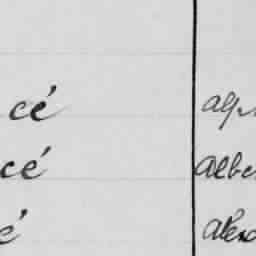 cé alp
cé albe
é alexa